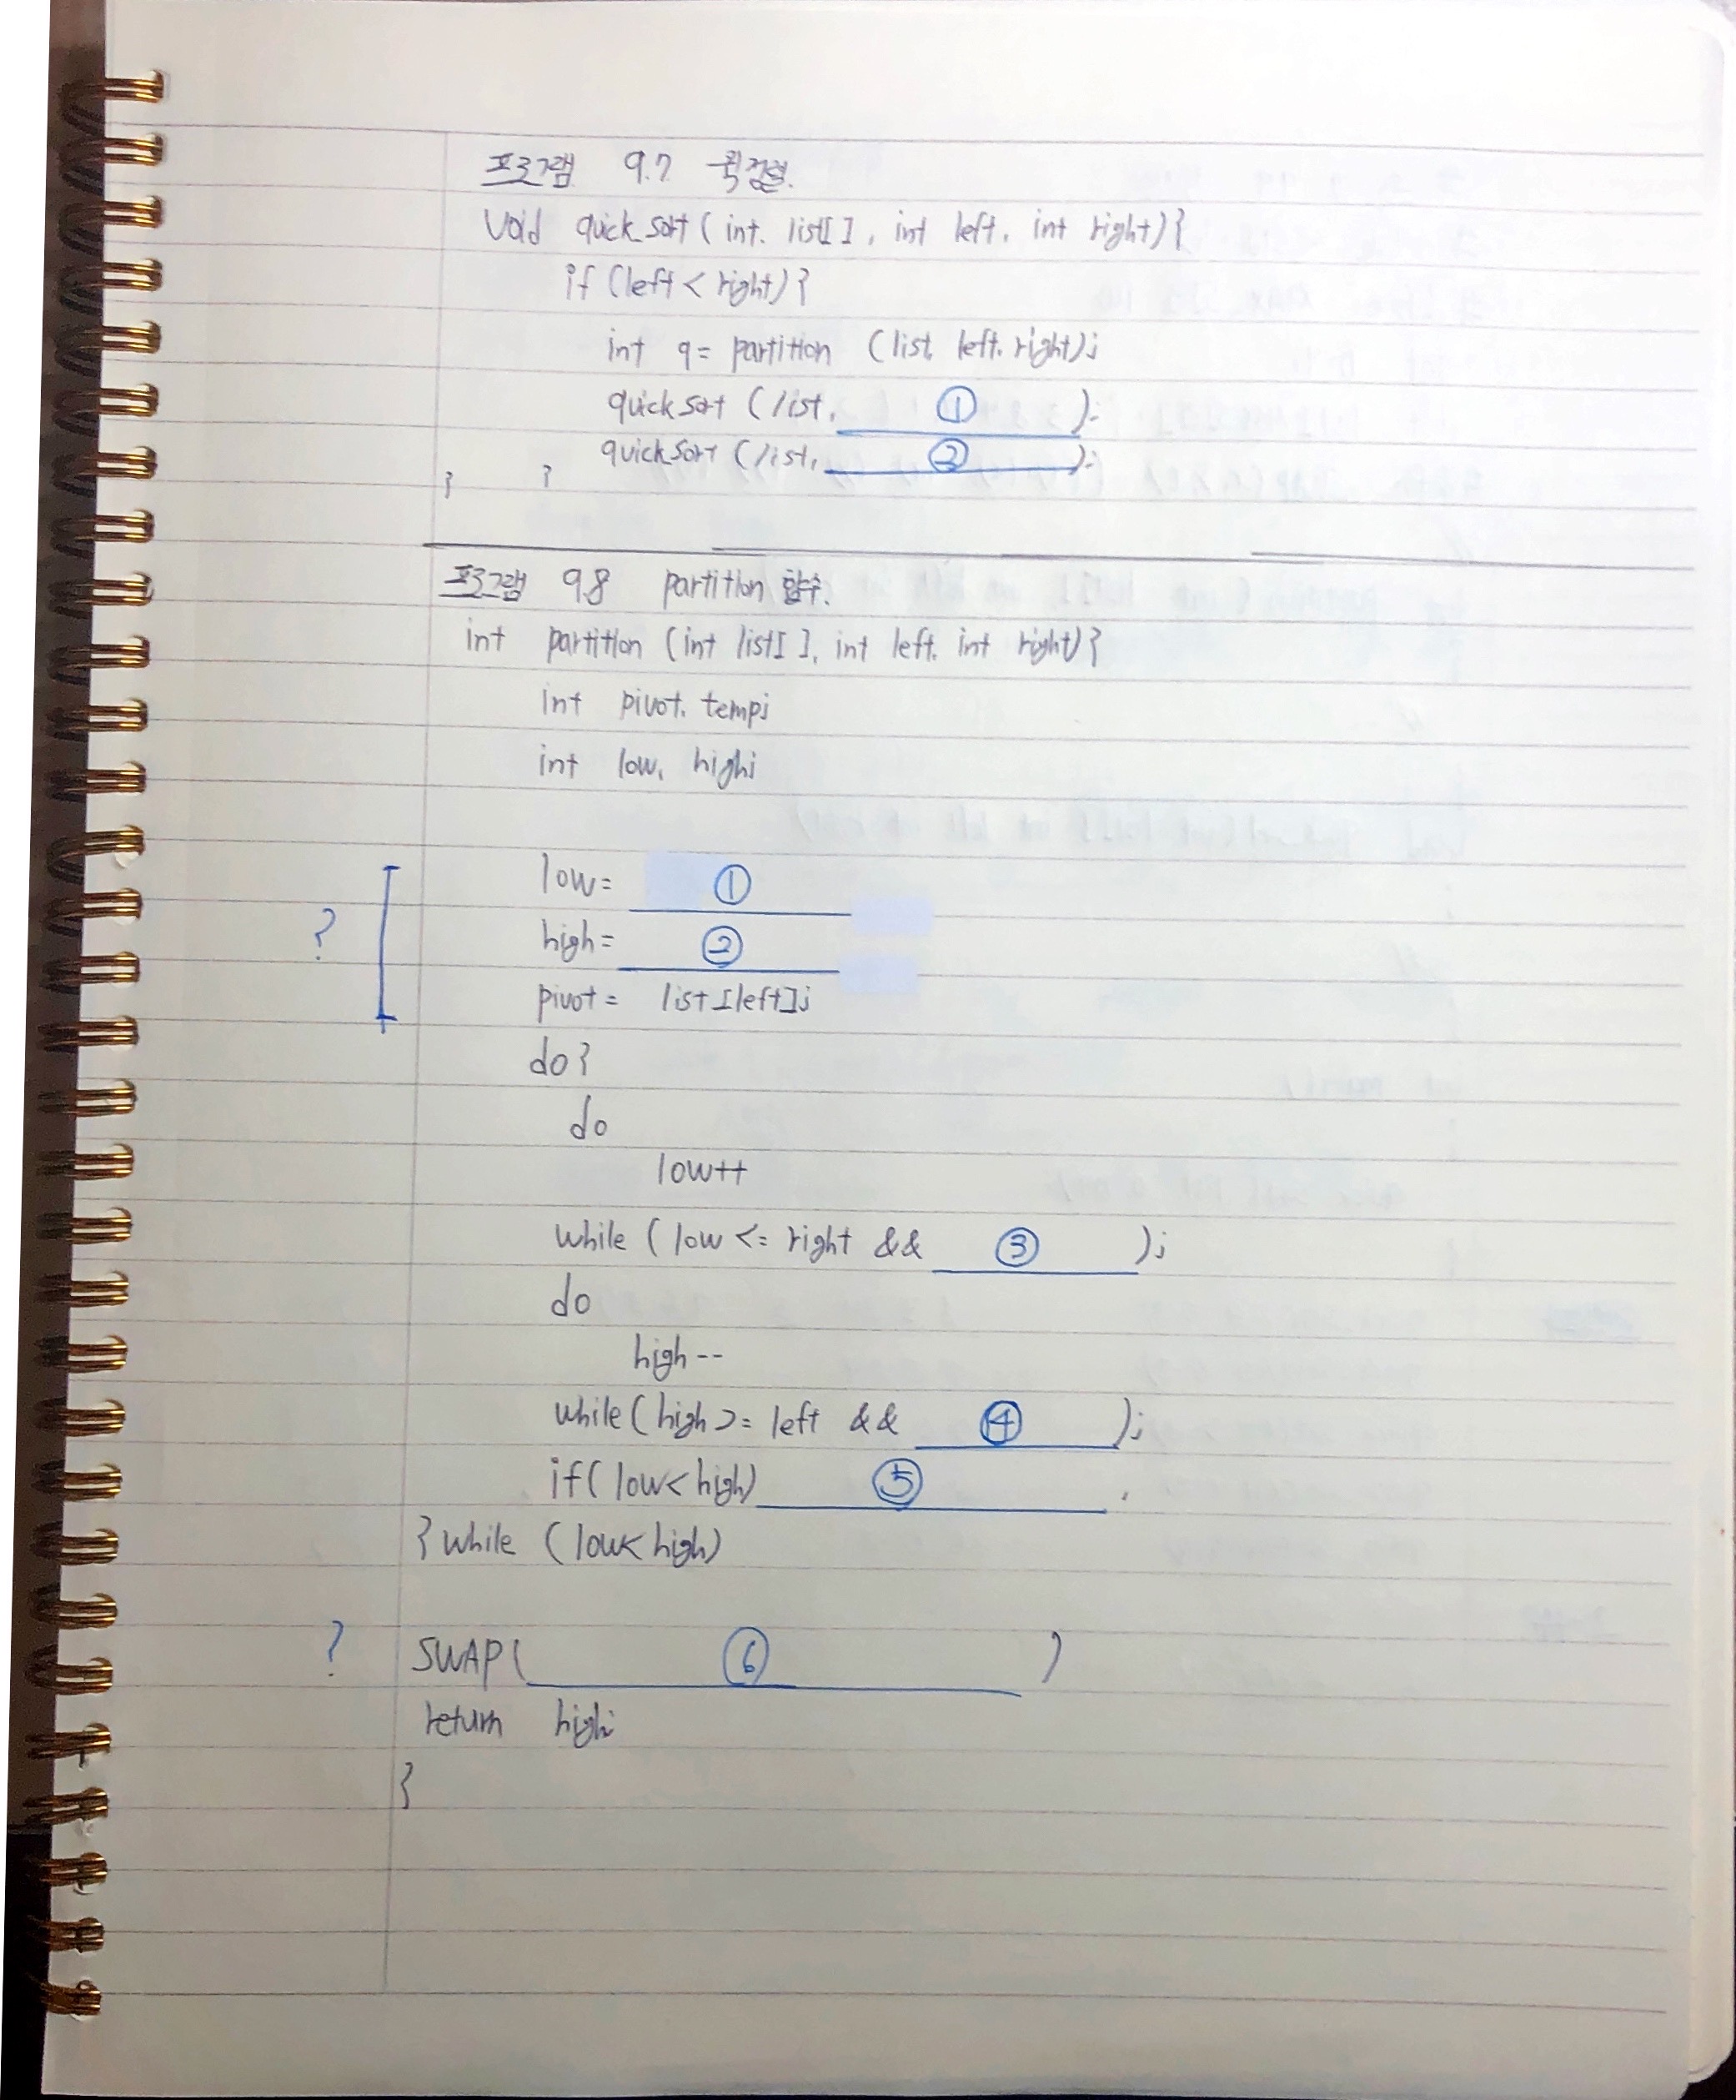 프로그램 9.7 퀵정렬.
void quick_sort ( int. list[ ], int left, int right) {
if (left < right) {
int q = partition (list, left, right);
quick sort ( list, ① );
quick sort ( list, ② );
} }
프로그램 9.8 partition 함수.
int partition (int list[ ], int left, int right) {
int pivot, temp;
int low, high;
low = ①
? high = ②
pivot = list [left];
do {
do
low++
while ( low <= right && ③ );
do
high --
while ( high >= left && ④ );
if ( low < high) ⑤ .
} while (low < high)
? SWAP ( ⑥ )
return high;
}